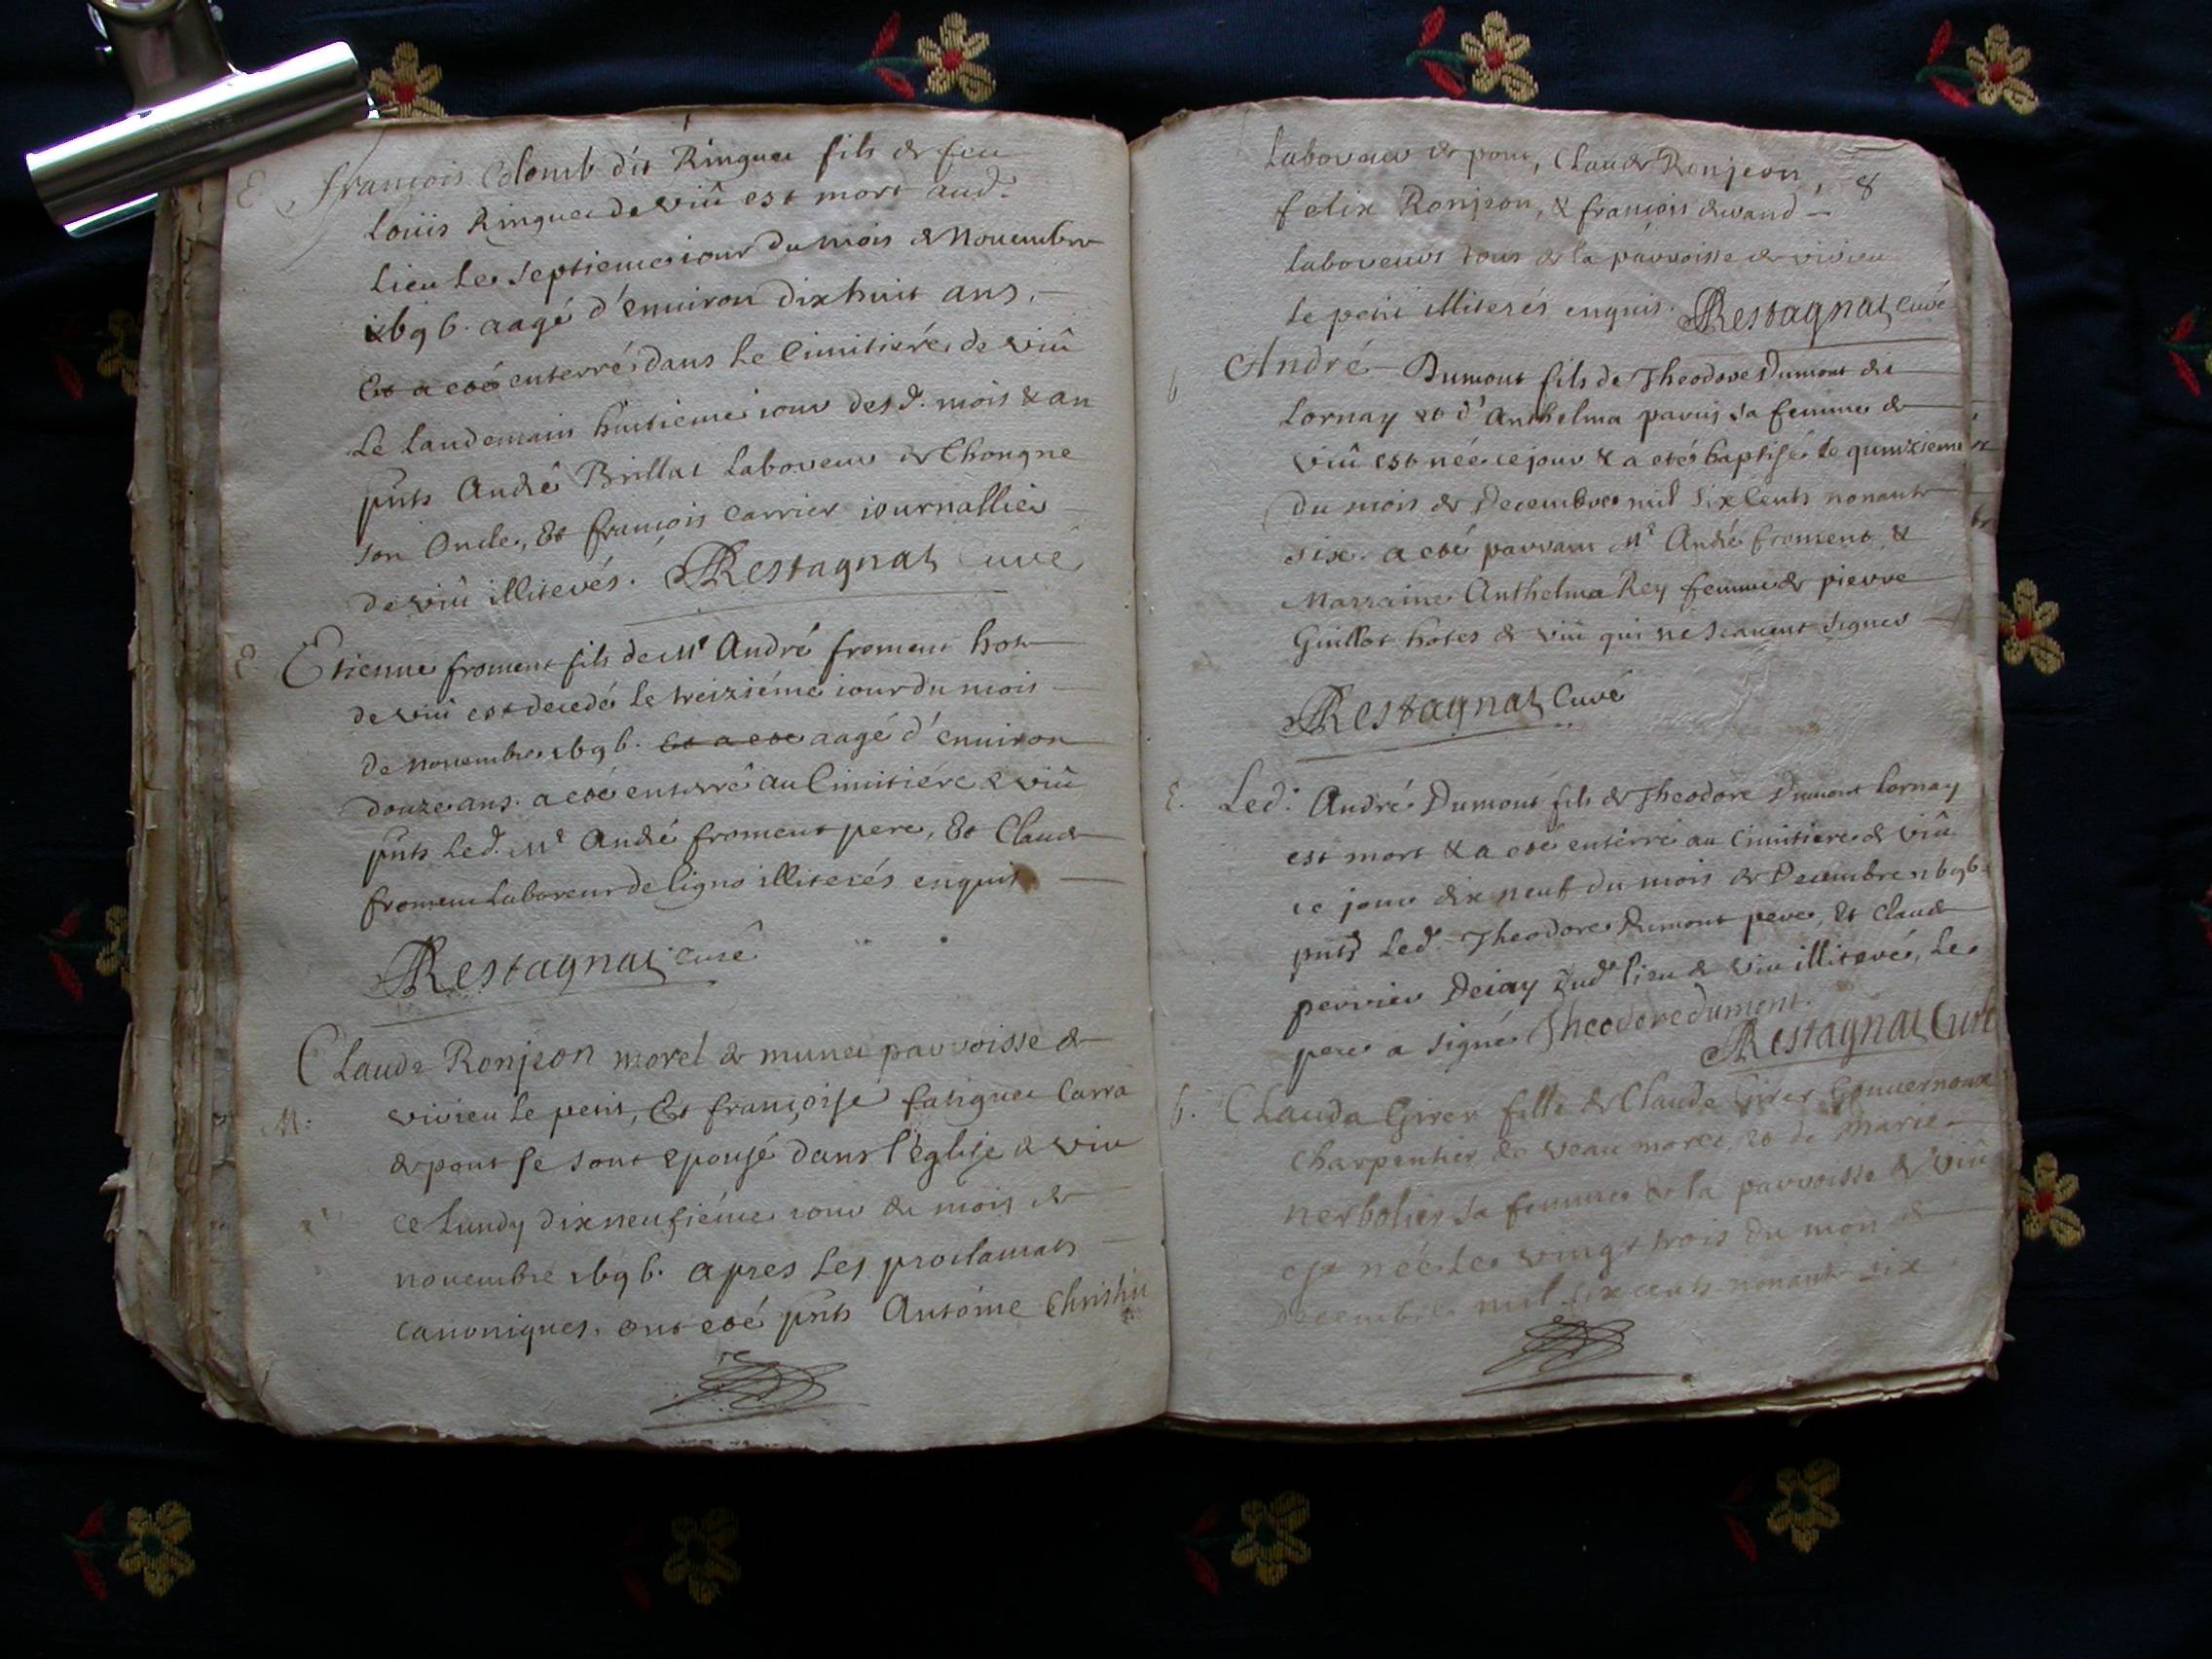 E françois Colomb dit Ringuet fils de feu
Loüis Ringuet de viû est mort aud.
lieu le septieme iour du mois de Novembre
1696. aagé d'enuiron dix huit ans.
Et a eté enterré dans le Cimitiére de viû
le landemain huitieme iour desd. mois & an
pnts André Brillat laboreur de Chongne
son Oncle, Et françois Carrier iournallier
de viû illiterés. Restagnat Curé
E Etienne froment fils de Mr André froment hoste
de viû est decedé le treiziéme iour du mois
de novembre 1696. Et a eté aagé d'enuiron
douze ans. a eté enterré au Cimitiére de viû
pnts led. Mr André froment pere, Et Claude
froment laboreur de ligno illiterés enquis
Restagnat curé
Claude Ronjeon morel de munet parroisse de
M: virieu le petit, Et françoise fatiguet Carra
de pont se sont epousé dans l'Eglise de viu
ce lundy dixneufiéme iour du mois de
novembre 1696. apres les proclamats
canoniques. ont eté pnts Antoine Christin
laboreur de pont, Claude Ronjeon,
8
felix Ronjeon, & françois
laboreurs tous de la parroisse de virieu
le petit illiterés enquis. Restagnat Curé
b André Dumont fils de Theodore Dumont dit
Lornay et d'Anthelma sa femme de
viû est née ce jour & a eté baptisé le quinzieme
du mois de Decembre mil six Cents nonante
six. a eté parrain Mr André froment &
Marraine Anthelma Rey femme de pierre
Guillot hotes de viû qui ne scauent signer
Restagnat Curé
E. Led. André Dumont fils de Theodore Dumont Lornay
est mort & a eté enterré au Cimitiere de viû
ce jour dix neuf du mois de Decembre 1696.
pnts led. Theodore Dumont pere, Et Claude
perrier Deiay dud. lieu de viu illiteré, le
pere a signé Theodore dument.
Restagnat Curé
b. Clauda Girer fille de Claude Girer Gouuernoux
Charpentier de veau et de Marie
nerbolier sa femme de la parroisse de viû
est née le vingt trois du mois de
Decembre mil six cents nonante six